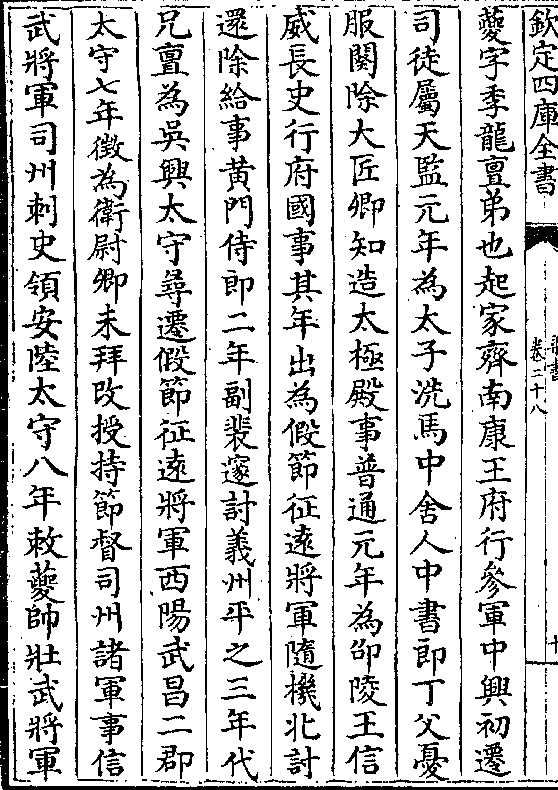 欽定四庫全書
梁書
卷二十八
十
夔字季龍亶弟也起家齊南康王府行參軍中興初遷
司徒屬天監元年為太子洗馬中舍人中書郎丁父憂
服闋除大匠卿知造太極殿事普通元年為邵陵王信
威長史行府國事其年出為假節征遠將軍隨機北討
還除給事黃門侍郎二年副裴邃討義州平之三年代
兄亶為吳興太守尋遷假節征遠將軍西陽武昌二郡
太守七年徵為衛尉卿未拜改授持節督司州諸軍事信
武將軍司州刺史領安陸太守八年敕夔帥壯武將軍